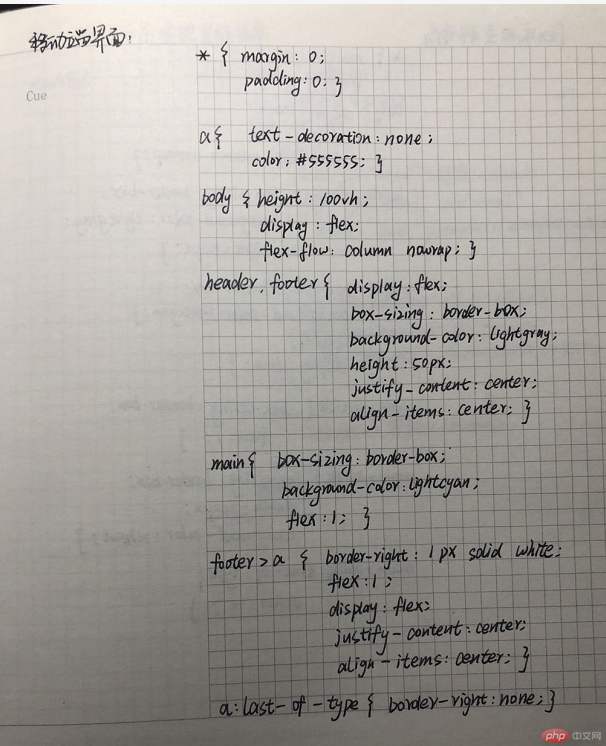 移动端界面:
* { margin: 0;
padding: 0; }
Cue
a { text-decoration: none;
color: #555555; }
body { height: 100vh;
display: flex;
flex-flow: column nowrap; }
header, footer { display: flex;
box-sizing: border-box;
background-color: lightgray;
height: 50px;
justify-content: center;
align-items: center; }
main { box-sizing: border-box;
background-color: lightcyan;
flex: 1; }
footer > a { border-right: 1px solid white;
flex: 1;
display: flex;
justify-content: center;
align-items: center; }
a:last-of-type { border-right: none; }
php 中文网